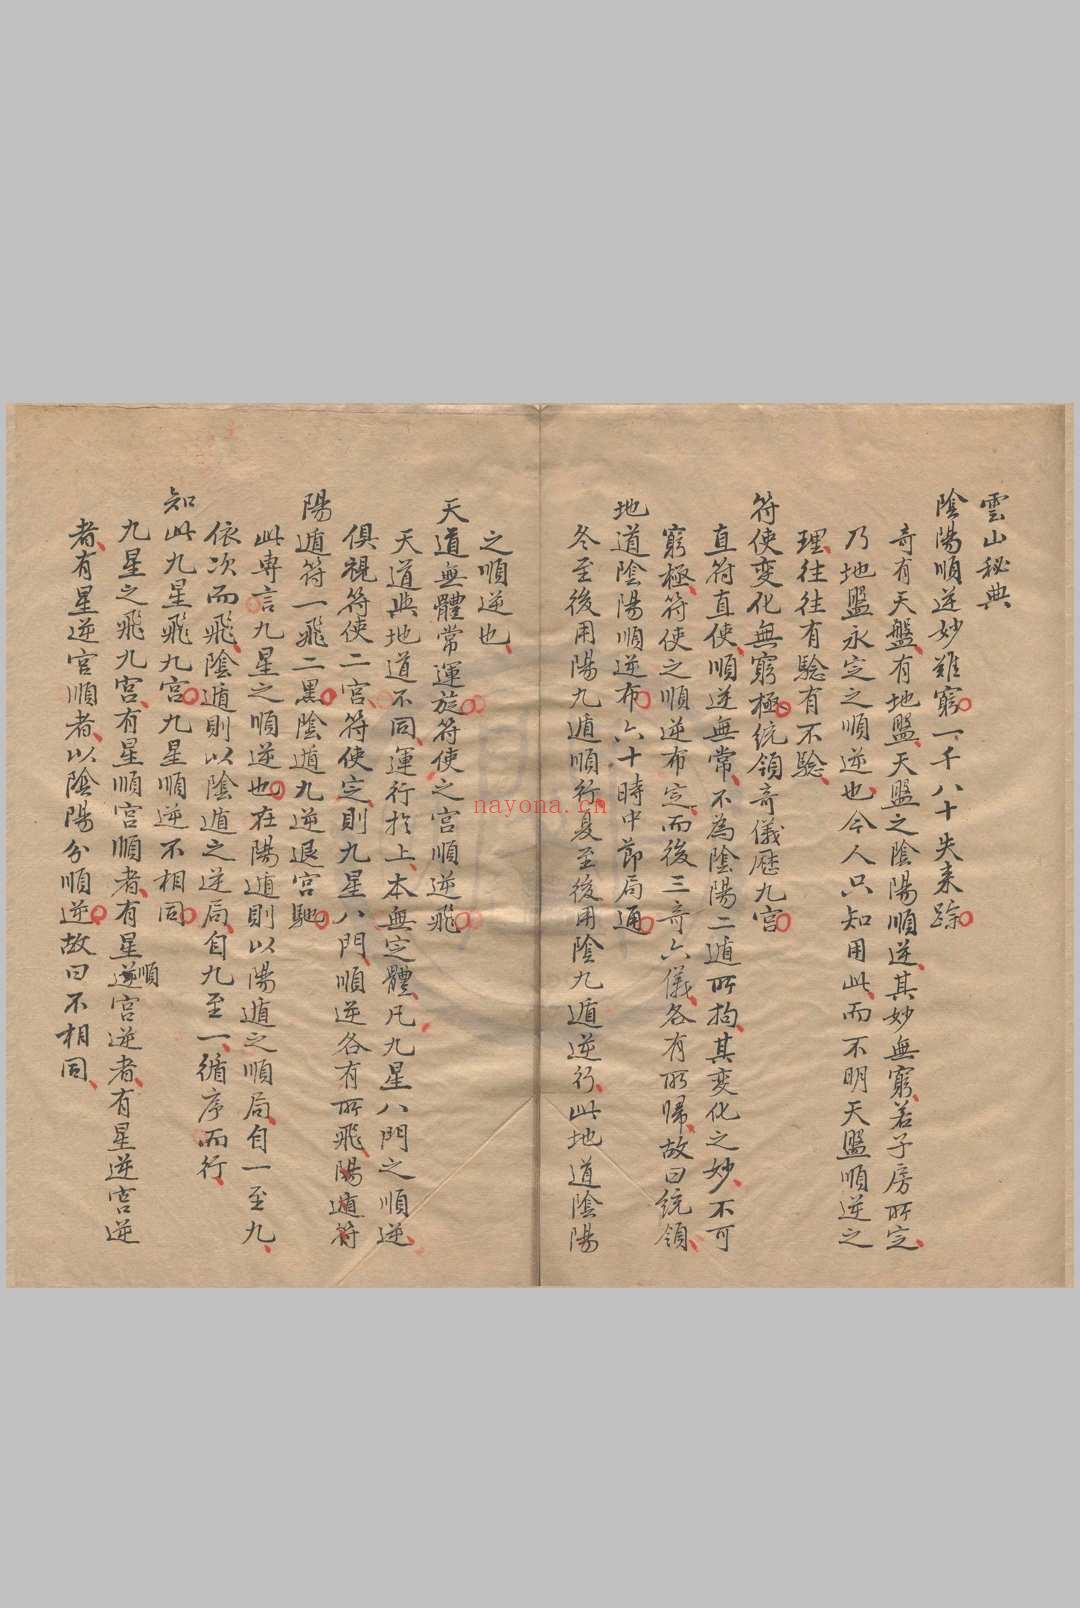 雲山秘典
陰陽順逆妙难窮一千八十失来踪
竒有天盤有地盤天盤之陰陽順逆其妙無窮若子房所定
乃地盤永定之順逆也今人只知用此而不明天盤順逆之
理往往有驗有不驗
符使变化無窮極统领竒儀歷九宫
直符直使順逆無常不為陰陽二遁所拘其变化之妙不可
窮極符使之順逆布定而後三竒六儀各有所歸故曰统领
地道陰陽順逆布六十時中節局通
冬至後用陽九遁順行夏至後用陰九遁逆行此地道陰陽
之順逆也
天道無體常運旋符使之宫順逆飛
天道與地道不同運行於上本無定體凡九星八門之順逆
俱視符使二宫符使定則九星八門順逆各有所飛陽遁符
陽遁符一飛二黑陰遁九逆退宫馳
此専言九星之順逆也在陽遁則以陽遁之順局自一至九
依次而飛陰遁則以陰遁之逆局自九至一循序而行
知此九星飛九宫九星順逆不相同
九星之飛九宫有星順宫順者有星逆順宫逆者有星逆宫逆
者有星逆宫順者以陰陽分順逆故曰不相同
nayona.cn